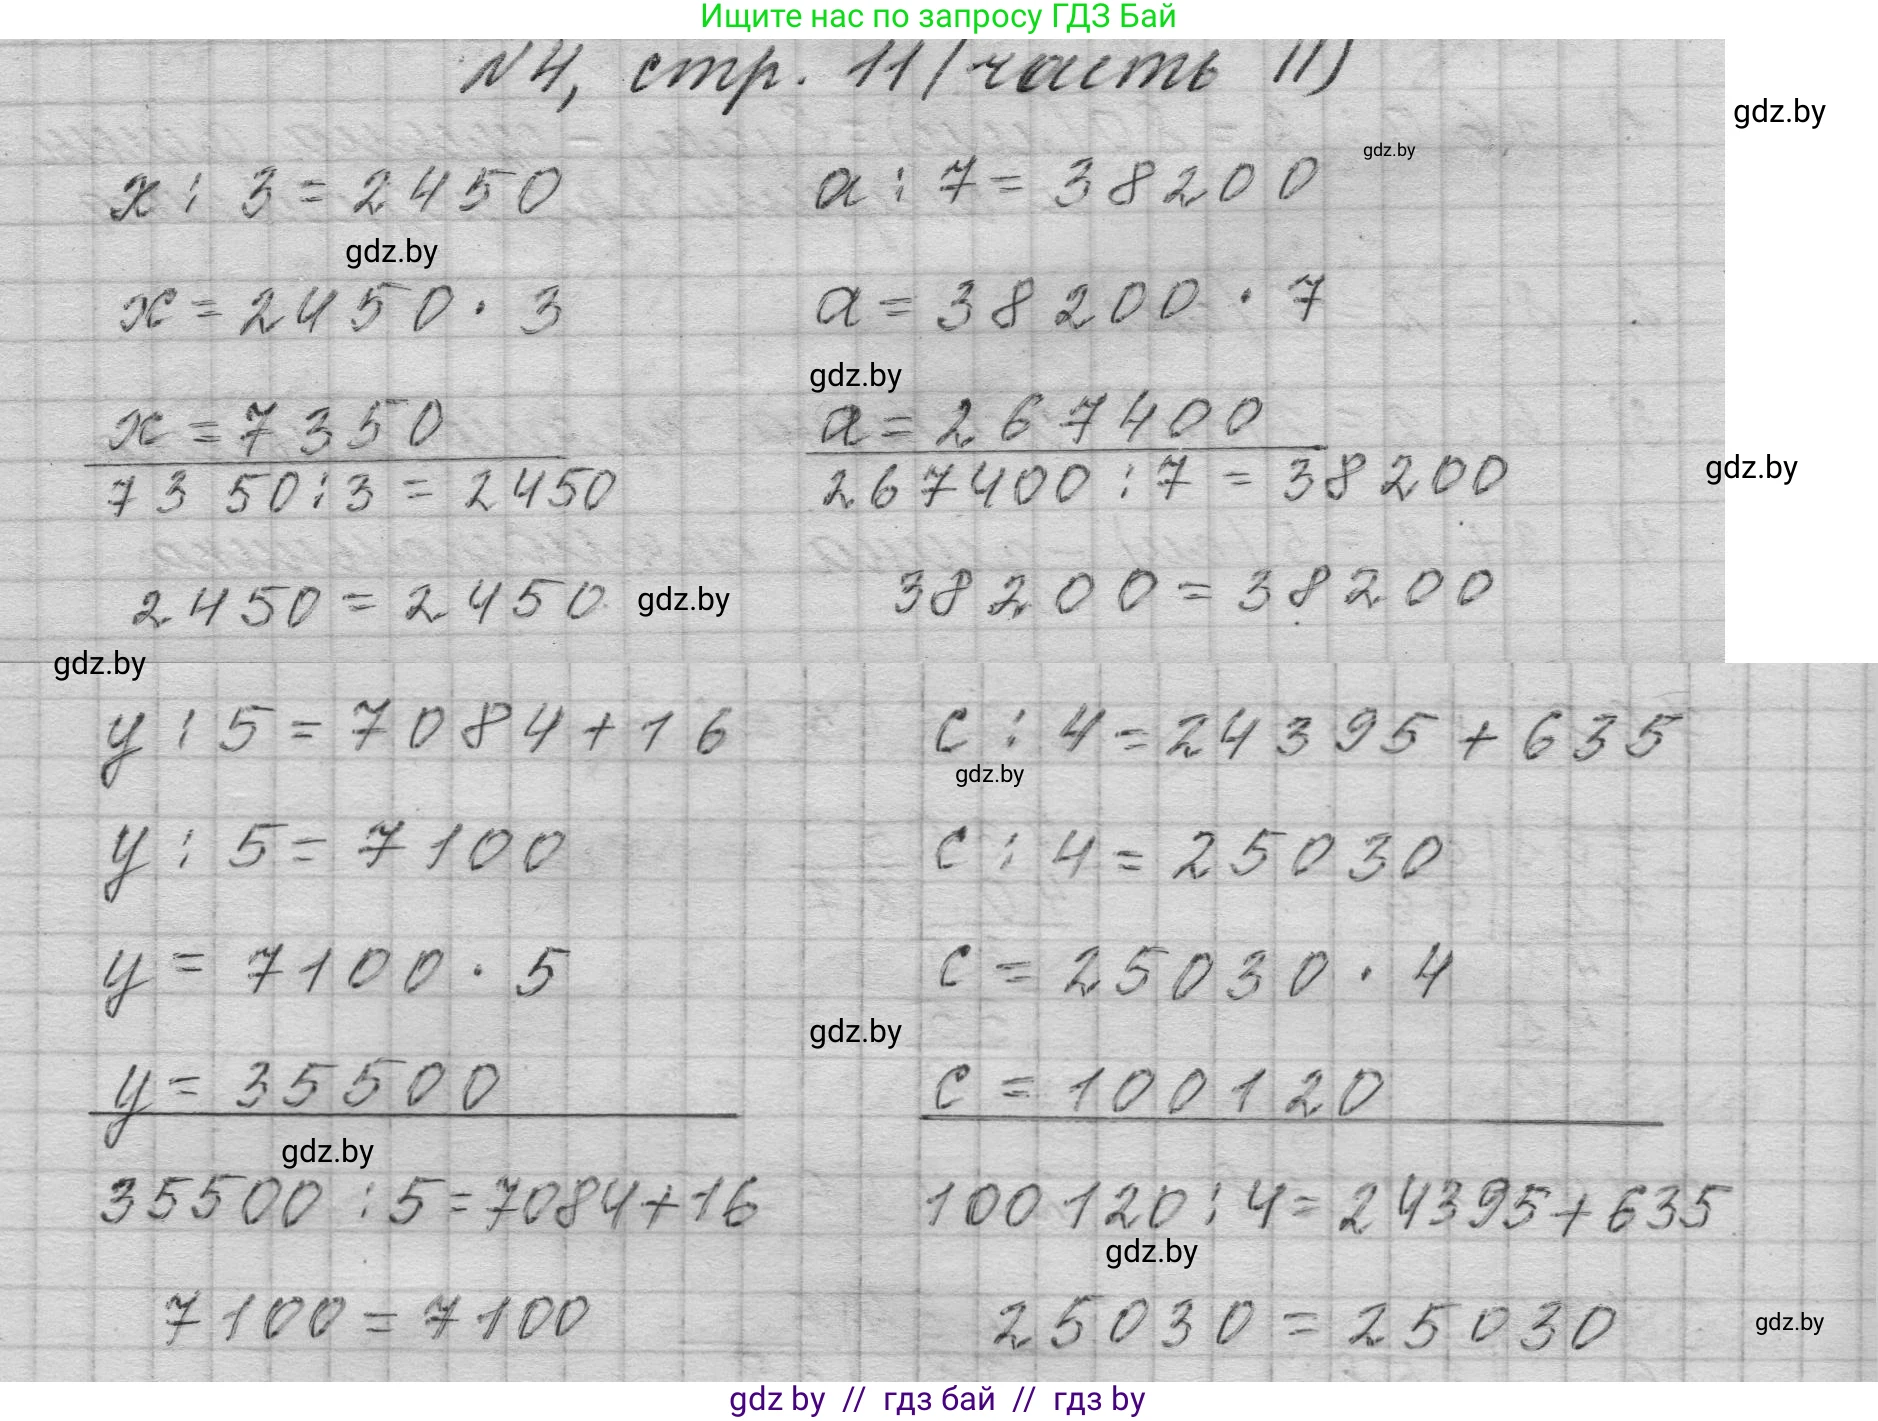 Ищите нас по запросу ГДЗ Бай
N4, стр. 11 (часть II)
gdz.by
gdz.by
x : 3 = 2450
a : 7 = 38200
gdz.by
x = 2450 · 3
a = 38200 · 7
gdz.by
x = 7350
a = 267400
gdz.by
7350 : 3 = 2450
267400 : 7 = 38200
2450 = 2450
gdz.by
38200 = 38200
gdz.by
y : 5 = 7084 + 16
c : 4 = 24395 + 635
gdz.by
y : 5 = 7100
c : 4 = 25030
y = 7100 · 5
c = 25030 · 4
gdz.by
y = 35500
c = 100120
gdz.by
35500 : 5 = 7084 + 16
100120 : 4 = 24395 + 635
gdz.by
7100 = 7100
25030 = 25030
gdz.by
gdz by // гдз бай // гдз by